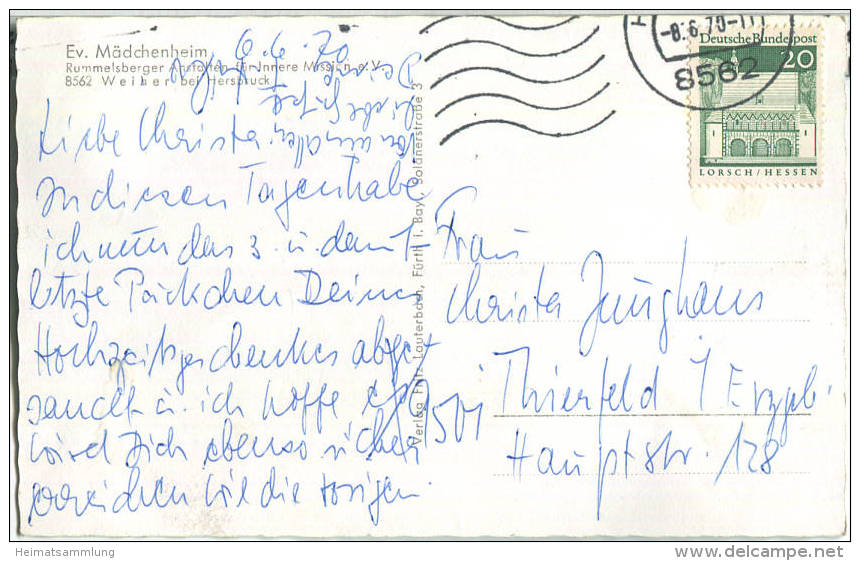 Ev. Mädchenheim
Rummelsberger Anstalten für Innere Mission e. V.
8562 Weiher bei Hersbruck
6.6.70
Liebe Christa.
In diesen Tagen habe
ich nun das 3. u. damit
letzte Päckchen Deines
Hochzeitsgeschenkes abge-
sandt u. ich hoffe es
wird Dich ebenso sicher
erreichen wie die vorigen.
von uns allen
Deine
Verlag Fritz Lauterbach, Fürth i. Bay., Soldnerstraße 3
-8.6.70-
8562
Deutsche Bundespost
20
LORSCH/HESSEN
Frau
Christa Junghans
9501
Thierfeld / Erzgeb.
Hauptstr. 128
Heimatsammlung
www.delcampe.net